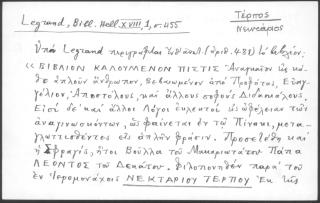 Legrand, Bibl. Hell. XVIII, 1, σ. 455
Τέρπος
Νεκτάριος
Ὑπὸ Legrand περιγράφεται (ἀριθ. 428) τὸ βιβλίον.
«ΒΙΒΛΙΟΝ ΚΑΛΟΥΜΕΝΟΝ ΠΙΣΤΙΣ Ἀναγκαῖον εἰς κά-
θε ἁπλοῦν ἄνθρωπον, βεβαιωμένον ἀπὸ Προφήτας, Εὐαγ-
γέλιον, Ἀποστόλους, καὶ ἄλλους σοφοὺς Διδασκάλους,
Εἰσὶ δὲ καὶ ἄλλοι Λόγοι ἐκλεκτοὶ εἰς ὠφέλειαν τῶν
ἀναγινωσκόντων, ὡς φαίνεται ἐν τῷ Πίνακι, μετα-
γλωττισθέντος εἰς ἁπλῆν φράσιν. Προσετέθη καὶ
ἡ Σφραγὶς, ἤτοι Βούλλα τοῦ Μακαριωτάτου Πάπα
ΛΕΟΝΤΟΣ τοῦ Δεκάτου. Φιλοπονηθὲν παρὰ τοῦ
ἐν Ἱερομονάχοις ΝΕΚΤΑΡΙΟΥ ΤΕΡΠΟΥ Ἐκ τῆς